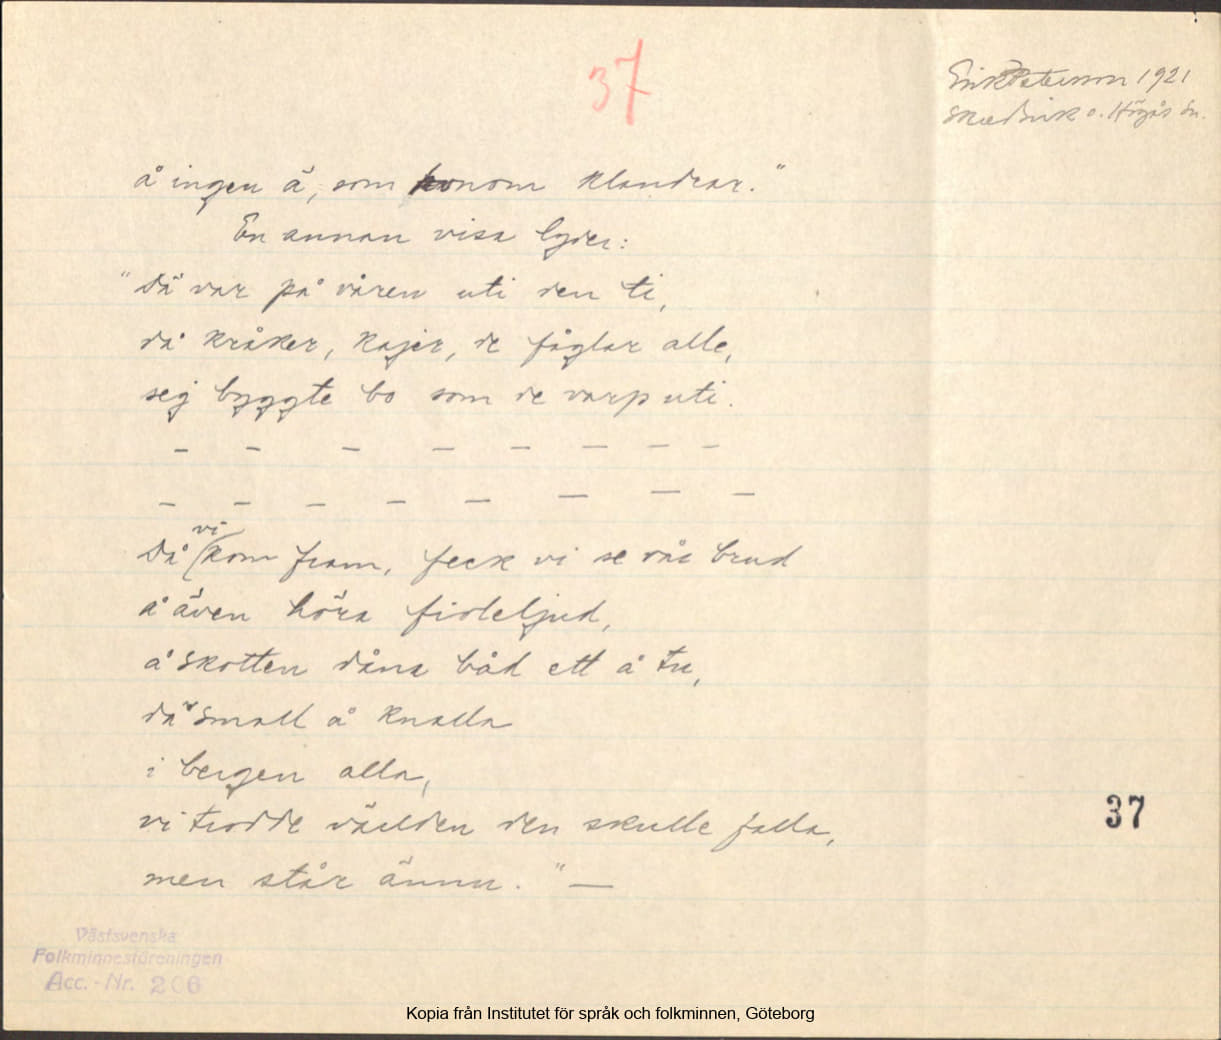 37
Erik Peterson 1921
Skredsvik o. Högås sn.
å ingen ä, som honom klandrar."
En annan visa lyder:
"Dä var på våren uti den ti,
då kråker, kajer, de fåglar alle,
sej byggte bo som de varp uti.
— — — — — — — —
— — — — — — — —
Då vi kom fram, feck vi se vår brud
å även höra fioleljud,
å skotten dåna båd ett å tu,
dä small å knalla
i bergen alla,
vi trodde världen den skulle falla,
men står ännu." —
37
Västsvenska
Folkminnesföreningen
Acc.-Nr. 206
Kopia från Institutet för språk och folkminnen, Göteborg